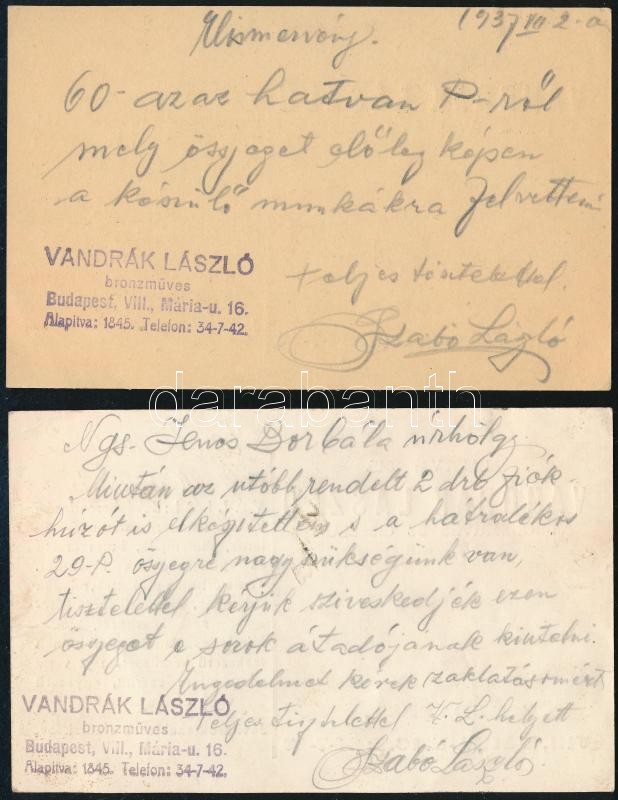 Elismervény.
1937 VII 2-a
60- azaz hatvan P-ről
mely összeget előleg képen
a készülő munkákra felvettem
teljes tisztelettel.
Szabó László
VANDRÁK LÁSZLÓ
bronzműves
Budapest, VIII., Mária-u. 16.
Alapitva: 1845. Telefon: 34-7-42.
darabanth
Ngs. Jenos Borbála úrhölgy
Miután az utóbb rendelt 2 drb fiók
húzót is elkészitettem s a hátralékos
29-P. összegre nagy szükségünk van,
tisztelettel kérjük sziveskedjék ezen
összeget e sorok átadójának kiutalni.
Engedelmet kérek zaklatásomért
teljes tisztelettel V. L. helyett
Szabó László
VANDRÁK LÁSZLÓ
bronzműves
Budapest, VIII., Mária-u. 16.
Alapitva: 1845. Telefon: 34-7-42.